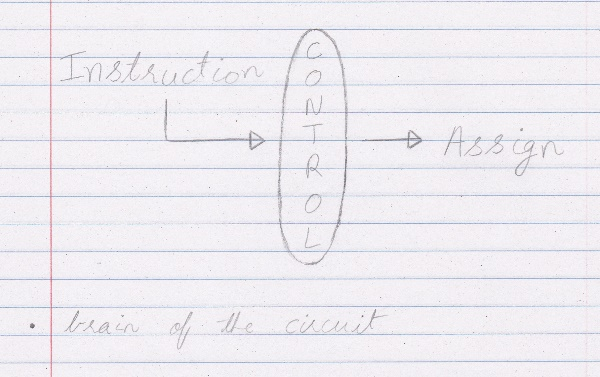 Instruction
CONTROL
Assign
• brain of the circuit